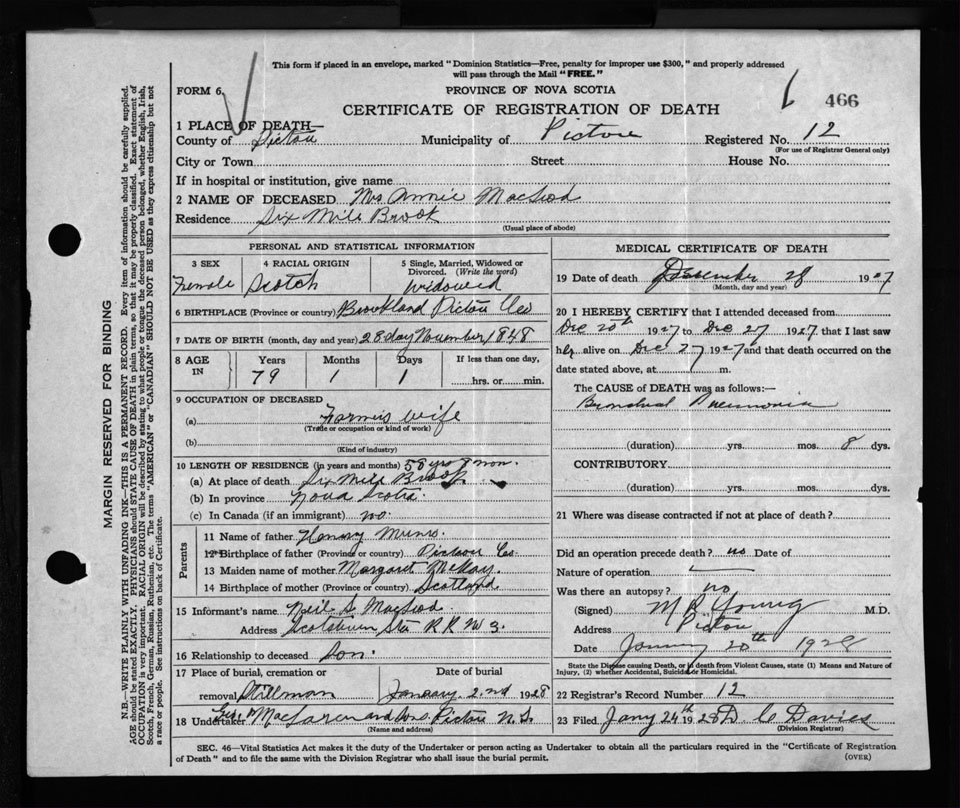 This form if placed in an envelope, marked "Dominion Statistics—Free, penalty for improper use $300," and properly addressed
will pass through the Mail "FREE."
FORM 6.
PROVINCE OF NOVA SCOTIA
466
CERTIFICATE OF REGISTRATION OF DEATH
1 PLACE OF DEATH—
County of Pictou Municipality of Pictou Registered No. 12
(For use of Registrar General only)
City or Town Street House No.
If in hospital or institution, give name
2 NAME OF DECEASED Mrs Annie MacLeod
Residence Six Mile Brook
(Usual place of abode)
PERSONAL AND STATISTICAL INFORMATION
3 SEX 4 RACIAL ORIGIN 5 Single, Married, Widowed or Divorced. (Write the word)
Female Scotch Widowed
6 BIRTHPLACE (Province or country) Brookland Pictou Co
7 DATE OF BIRTH (month, day and year) 28 day November 1848
8 AGE IN Years Months Days If less than one day,
79 1 1 hrs. or min.
9 OCCUPATION OF DECEASED
(a) Farmers wife
(Trade or occupation or kind of work)
(b)
(Kind of industry)
10 LENGTH OF RESIDENCE (in years and months) 58 yrs 8 mon.
(a) At place of death Six Mile Brook
(b) In province Nova Scotia.
(c) In Canada (if an immigrant) no.
Parents
11 Name of father Munro
12 Birthplace of father (Province or country) Pictou Co.
13 Maiden name of mother Margaret McKay.
14 Birthplace of mother (Province or country) Scotland
15 Informant's name Neil S. MacLeod.
Address Scotsburn Sta R R No 3.
16 Relationship to deceased Son.
17 Place of burial, cremation or removal Date of burial
January 2nd 1928
18 Undertaker MacLaren and Sons. Pictou N.S.
(Name and address)
MEDICAL CERTIFICATE OF DEATH
19 Date of death December 28 1927
(Month, day and year)
20 I HEREBY CERTIFY that I attended deceased from
Dec 20th 1927 to Dec 27 1927 that I last saw
her alive on Dec 27 1927 and that death occurred on the
date stated above, at m.
The CAUSE OF DEATH was as follows:—
Bronchial Pneumonia
(duration) yrs. mos. 8 dys.
CONTRIBUTORY.
(duration) yrs. mos. dys.
21 Where was disease contracted if not at place of death?
Did an operation precede death? no Date of
Nature of operation
Was there an autopsy? no
(Signed) M R Young M.D.
Address Pictou
Date January 20th 1928
State the Disease causing Death, or in death from Violent Causes, state (1) Means and Nature of
Injury, (2) whether Accidental, Suicidal or Homicidal.
22 Registrar's Record Number 12
23 Filed Jany 24th 1928 D C Davies
(Division Registrar)
SEC. 46—Vital Statistics Act makes it the duty of the Undertaker or person acting as Undertaker to obtain all the particulars required in the "Certificate of Registration
of Death" and to file the same with the Division Registrar who shall issue the burial permit.
(OVER)
MARGIN RESERVED FOR BINDING
N.B.—WRITE PLAINLY WITH UNFADING INK—THIS IS A PERMANENT RECORD. Every item of information should be carefully supplied.
AGE should be stated EXACTLY. PHYSICIANS should STATE CAUSE OF DEATH in plain terms, so that it may be properly classified. Exact statement of
OCCUPATION is very important. RACIAL ORIGIN will be described by stating to what people or tongue the deceased person belonged, whether English, Irish,
Scotch, French, German, Russian, Ruthenian, etc. The terms "AMERICAN" or "CANADIAN" SHOULD NOT BE USED as they express citizenship but not
a race or people. See instructions on back of Certificate.